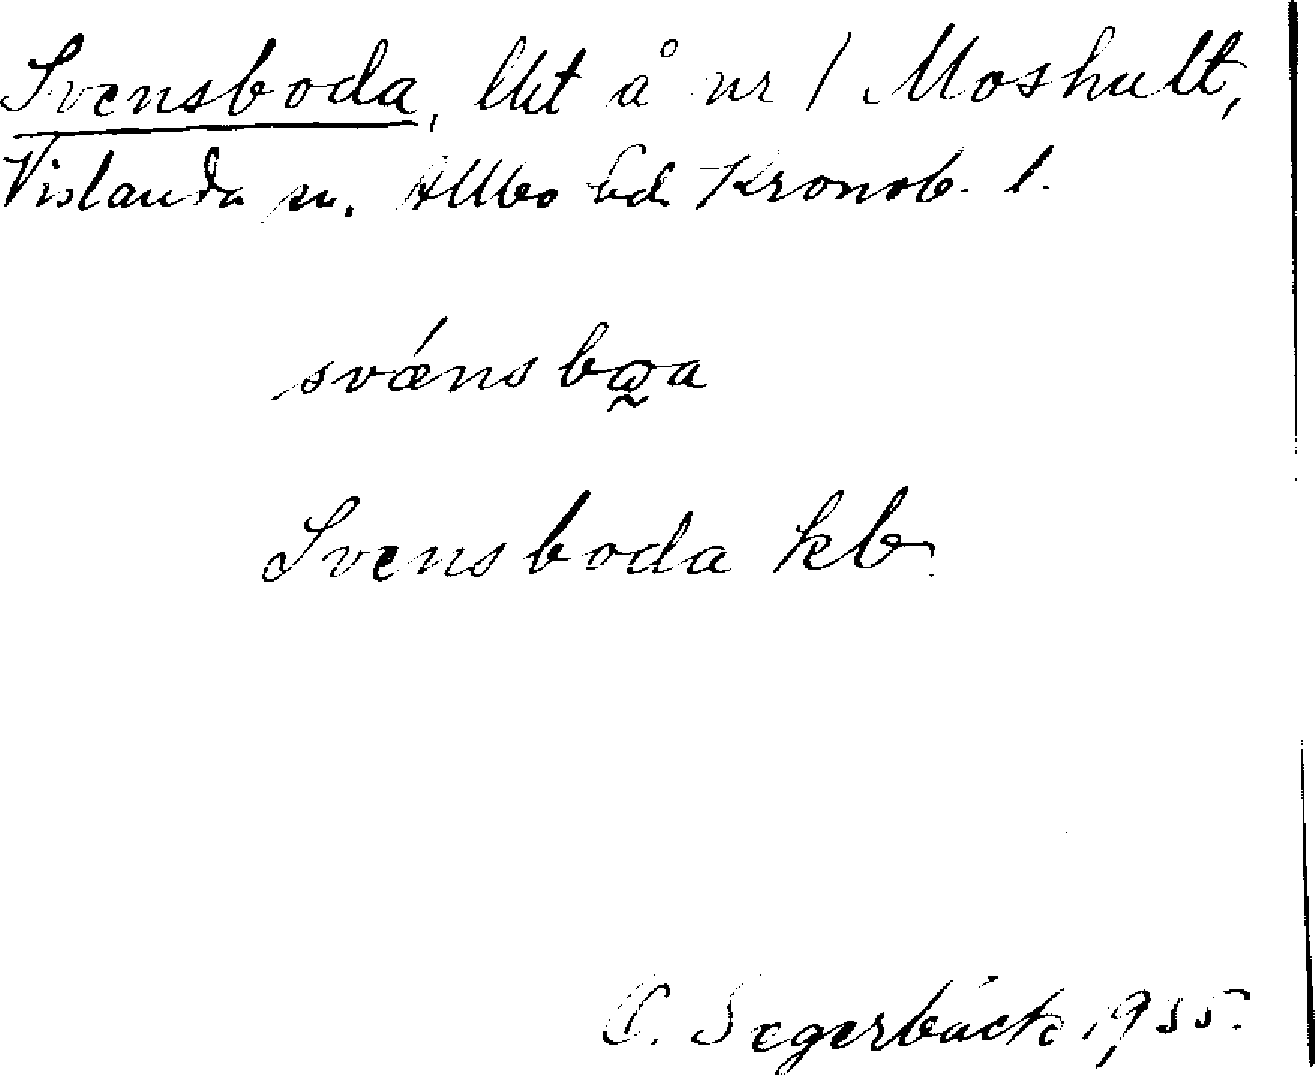 Svensboda, lht å nr 1 Moshult,
Vislanda sn. Allbo hd Kronob. l.
svǽnsbꝏ̰a
Svensboda kb.
C. Segerbäck 1935.